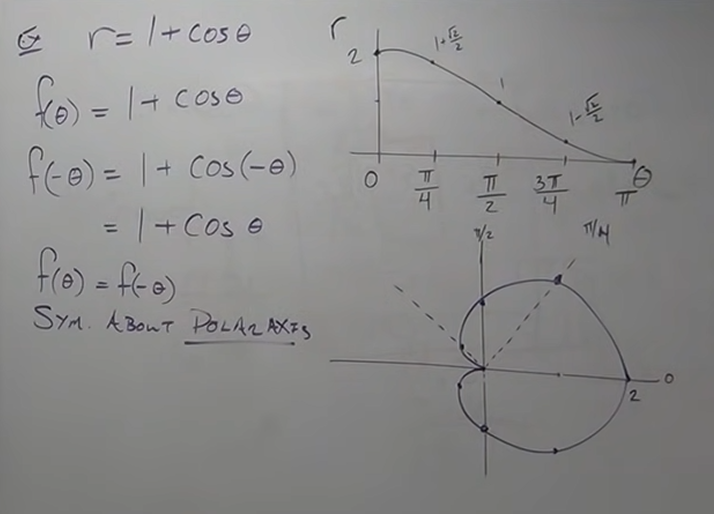 Ex r = 1 + cos θ
f(θ) = 1 + cos θ
f(-θ) = 1 + cos(-θ)
= 1 + cos θ
f(θ) = f(-θ)
SYM. ABOUT POLAR AXIS
r
2
1+√2/2
1
1-√2/2
0 π/4 π/2 3π/4 π θ
π/2 π/4
0
2